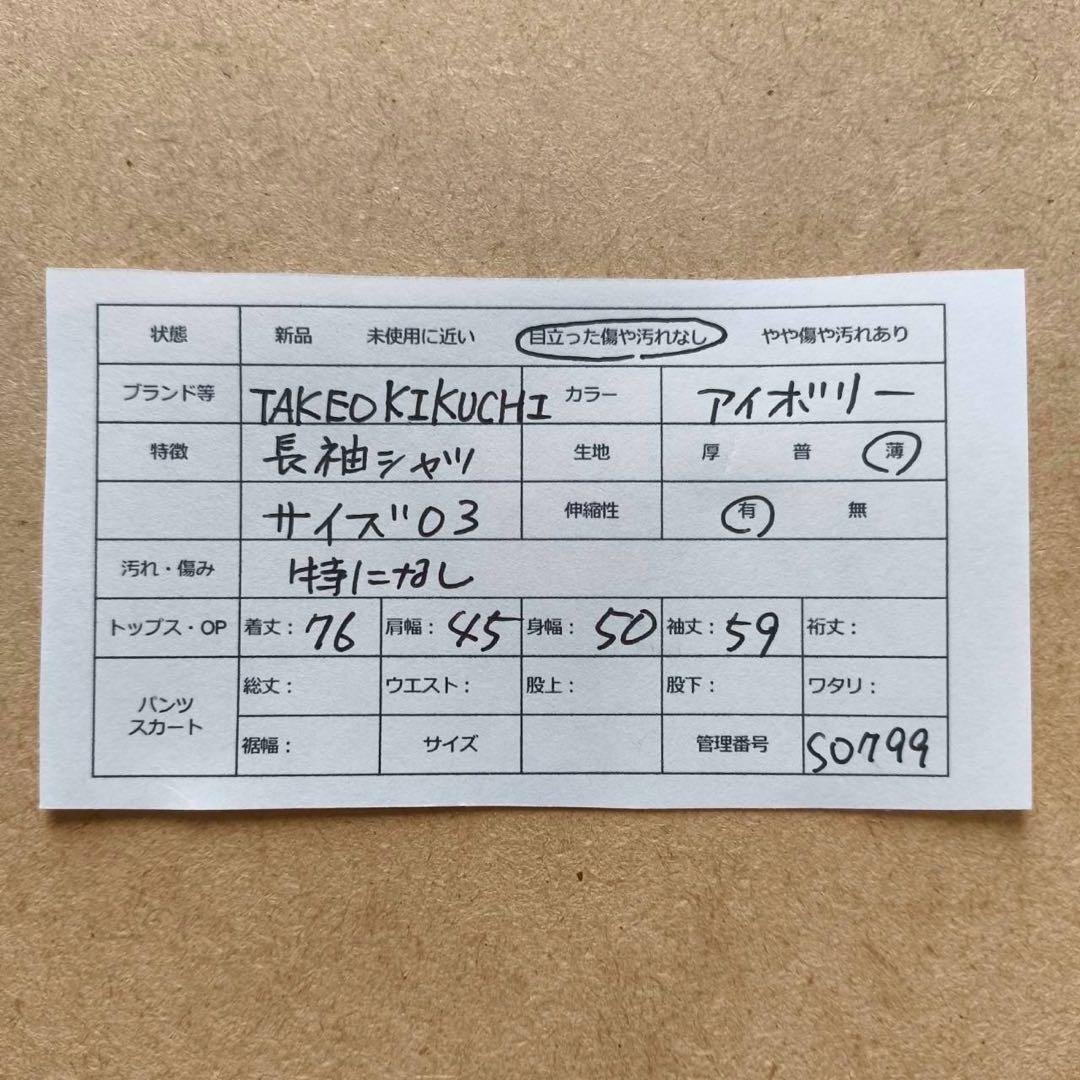 状態 新品 未使用に近い 目立った傷や汚れなし やや傷や汚れあり
ブランド等 TAKEO KIKUCHI カラー アイボリー
特徴 長袖シャツ 生地 厚 普 薄
サイズ03 伸縮性 有 無
汚れ・傷み 特になし
トップス・OP 着丈: 76 肩幅: 45 身幅: 50 袖丈: 59 裄丈:
パンツ
スカート
総丈: ウエスト: 股上: 股下: ワタリ:
裾幅: サイズ 管理番号 S0799